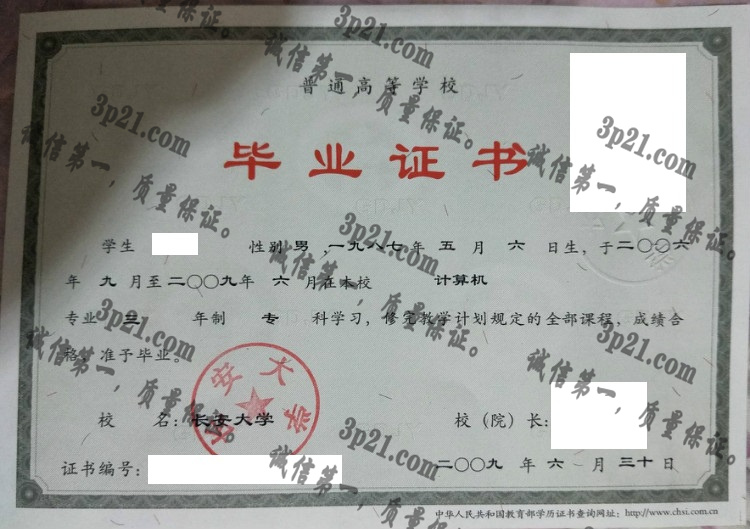 普通高等学校
毕业证书
学生 性别 男 ,一九八七年 五 月 六 日生, 于二〇〇六
年 九 月至二〇〇九年 六 月在本校 计算机
专业 三 年制 专 科学习, 修完教学计划规定的全部课程, 成绩合
格, 准予毕业。
长安大学
校 名: 长安大学 校 (院) 长:
证书编号: 二〇〇九 年 六 月 三十日
中华人民共和国教育部学历证书查询网址: http://www.chsi.com.cn
3p21.com
诚信第一, 质量保证。
3p21.com
诚信第一, 质量保证。
3p21.com
诚信第一, 质量保证。
3p21.com
诚信第一, 质量保证。
3p21.com
诚信第一, 质量保证。
3p21.com
诚信第一, 质量保证。
3p21.com
诚信第一, 质量保证。